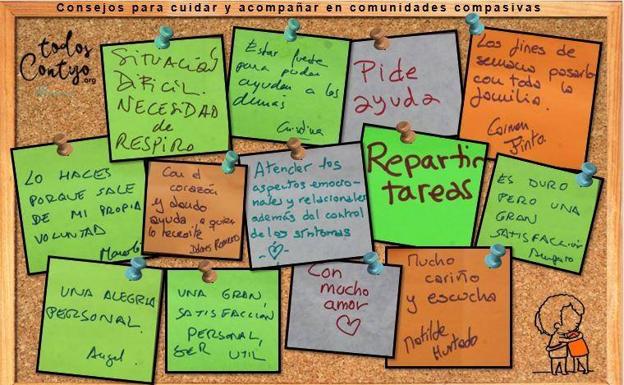 Consejos para cuidar y acompañar en comunidades compasivas
todos
Contigo
.org
SITUACIÓN
DIFICIL.
NECESIDAD
de
RESPIRO
Estar fuerte
para poder
ayudar a los
demas
Cristina
Pide
ayuda
Los fines de
semana pasarlo
con toda la
familia.
Carmen
Pinto
LO HACES
PORQUE SALE
DE MI PROPIA
VOLUNTAD
Con el
corazón
y dando
ayuda a quien
lo necesite
Romero
Atender los
aspectos emocio-
nales y relacionales
además del control
de los síntomas
Repartir
tareas
ES DURO
PERO UNA
GRAN
SATISFACCIÓN
Amparo
UNA ALEGRIA
PERSONAL.
Angel.
UNA GRAN
SATISFACCION
PERSONAL,
SER UTIL
Con
mucho
amor
Mucho
cariño
y escucha
Matilde
Hurtado